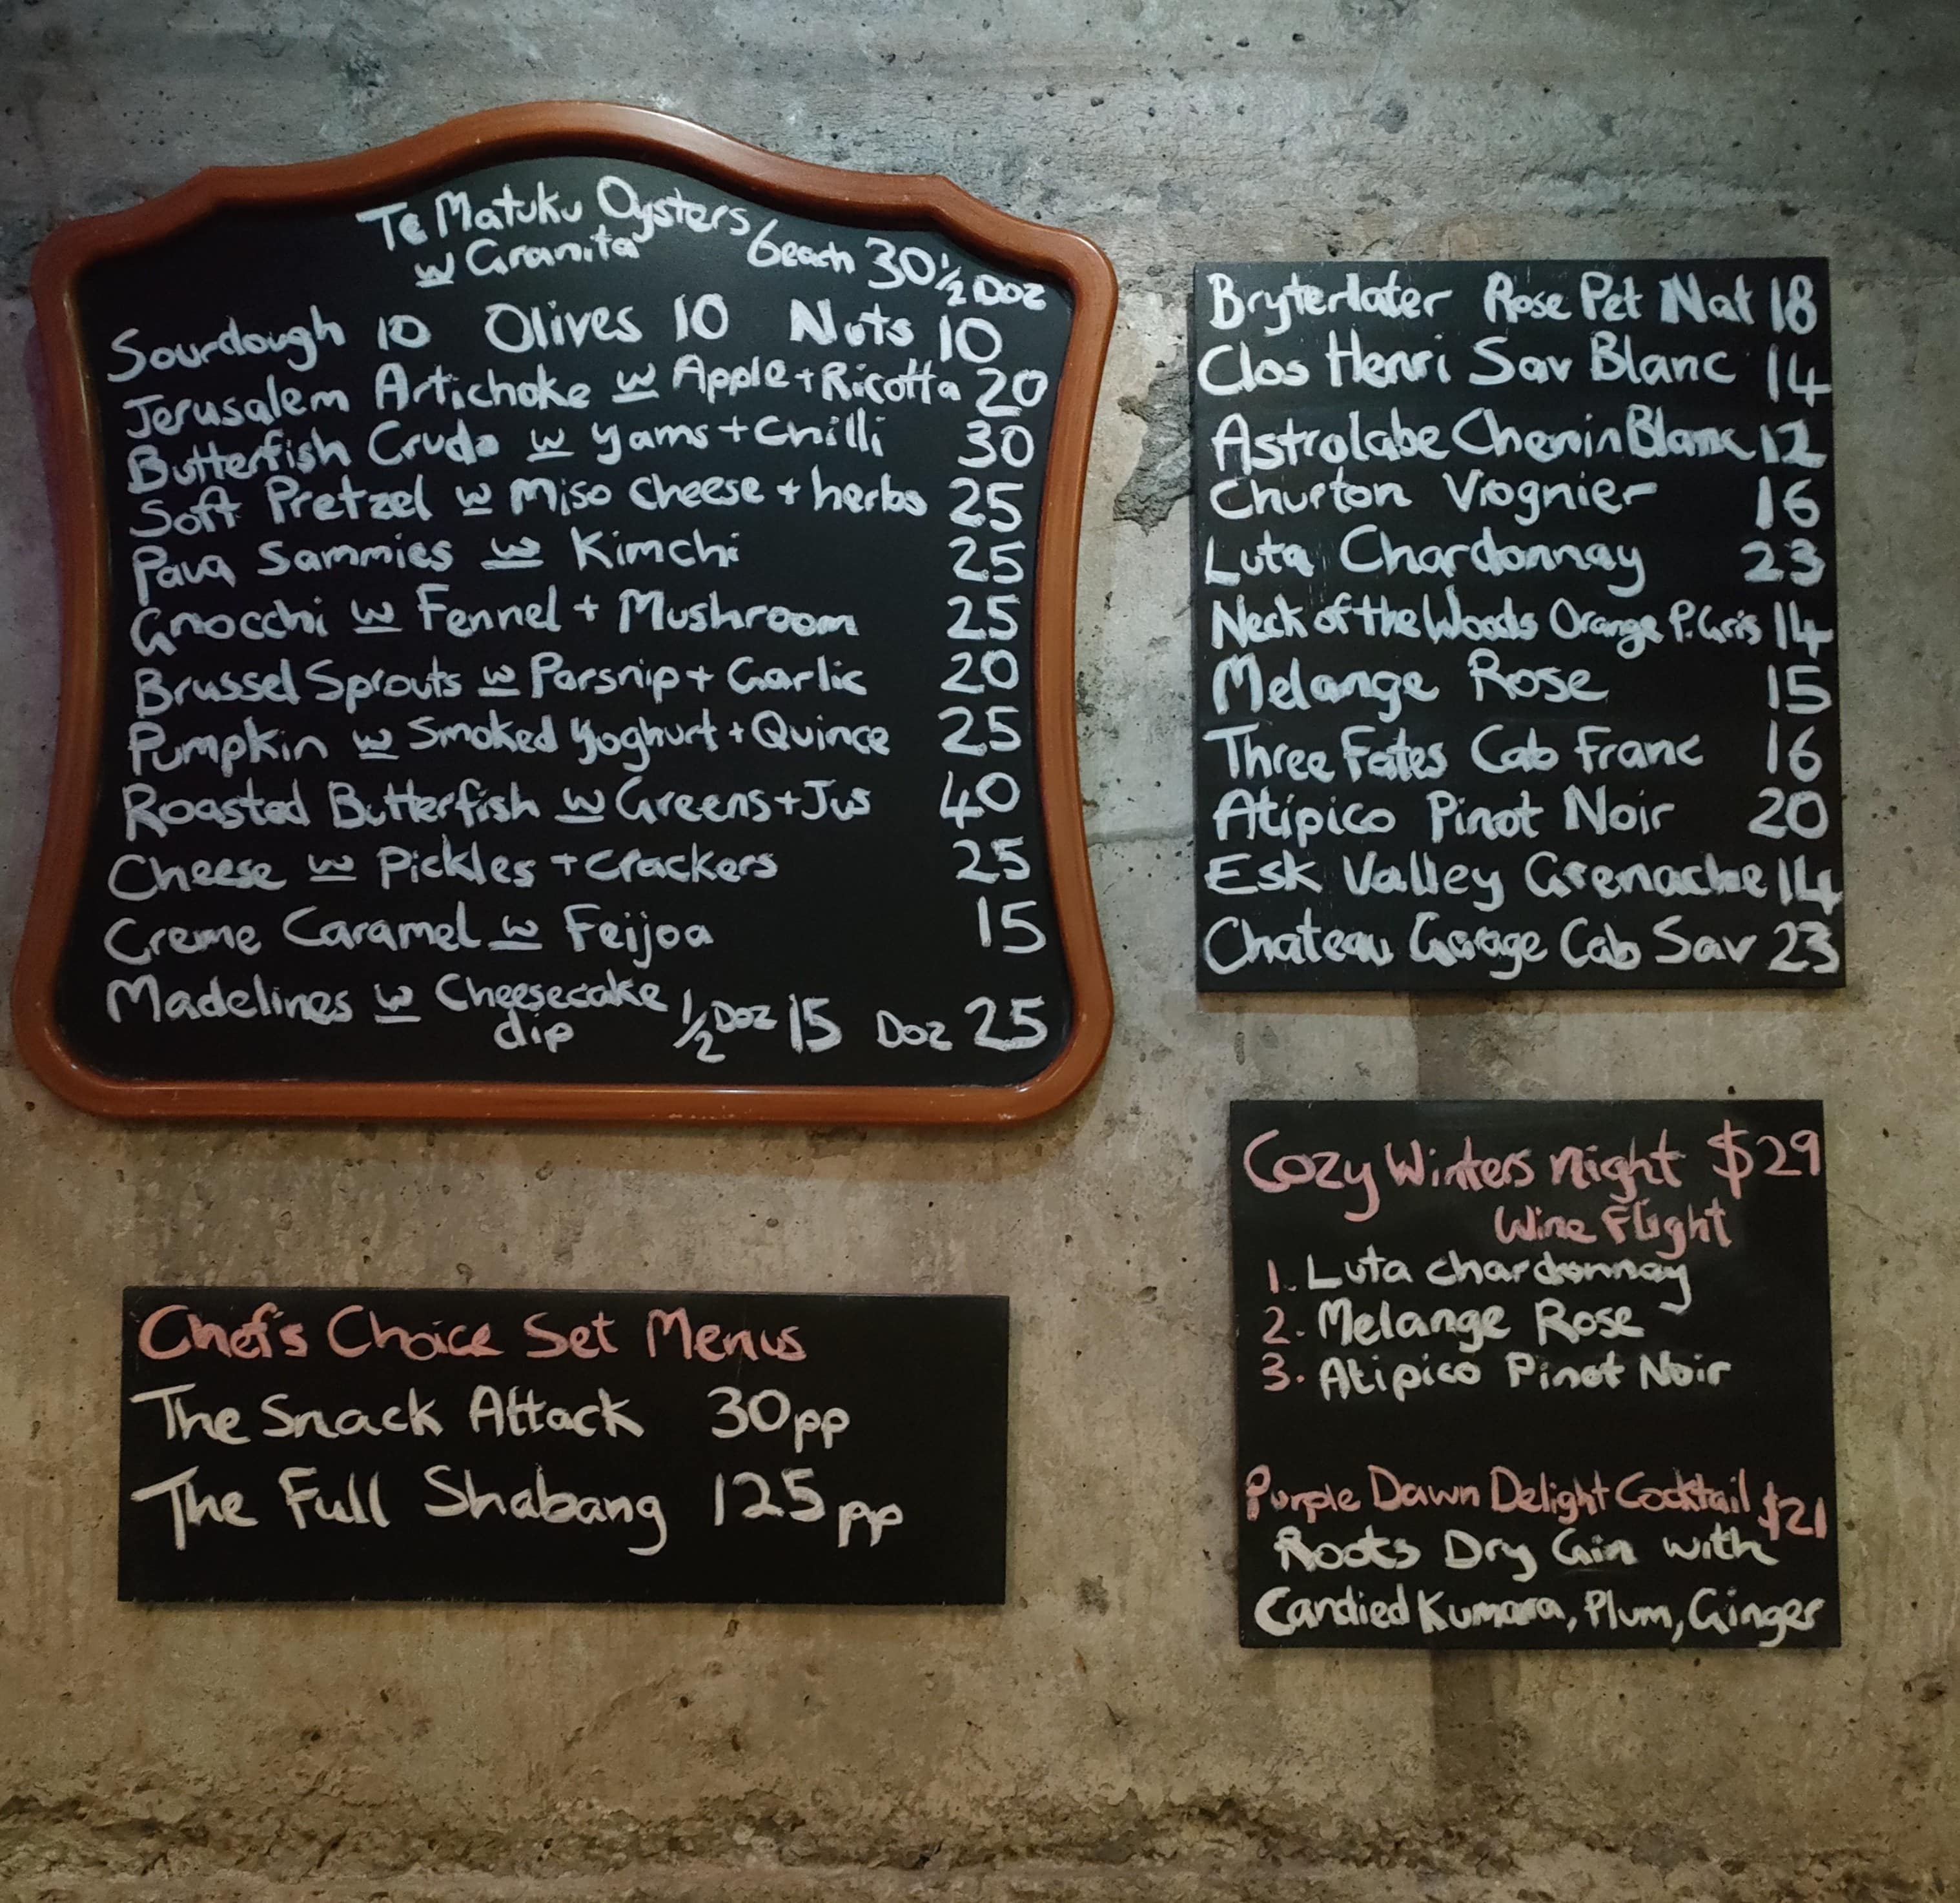 Te Matuku Oysters
w Granita 6 each 30 1/2 Doz
Sourdough 10 Olives 10 Nuts 10
Jerusalem Artichoke w Apple + Ricotta 20
Butterfish Crudo w Yams + Chilli 30
Soft Pretzel w Miso Cheese + herbs 25
Paua Sammies w Kimchi 25
Gnocchi w Fennel + Mushroom 25
Brussel Sprouts w Parsnip + Garlic 20
Pumpkin w Smoked Yoghurt + Quince 25
Roasted Butterfish w Greens + Jus 40
Cheese w Pickles + Crackers 25
Creme Caramel w Feijoa 15
Madelines w Cheesecake
dip 1/2 Doz 15 Doz 25
Bryterlater Rose Pet Nat 18
Clos Henri Sav Blanc 14
Astrolabe Chenin Blanc 12
Churton Viognier 16
Luta Chardonnay 23
Neck of the Woods Orange P. Gris 14
Melange Rose 15
Three Fates Cab Franc 16
Atipico Pinot Noir 20
Esk Valley Grenache 14
Chateau Garage Cab Sav 23
Chef's Choice Set Menus
The Snack Attack 30pp
The Full Shabang 125pp
Cozy Winters night $29
Wine Flight
1. Luta chardonnay
2. Melange Rose
3. Atipico Pinot Noir
Purple Dawn Delight Cocktail $21
Roots Dry Gin with
Candied Kumara, Plum, Ginger